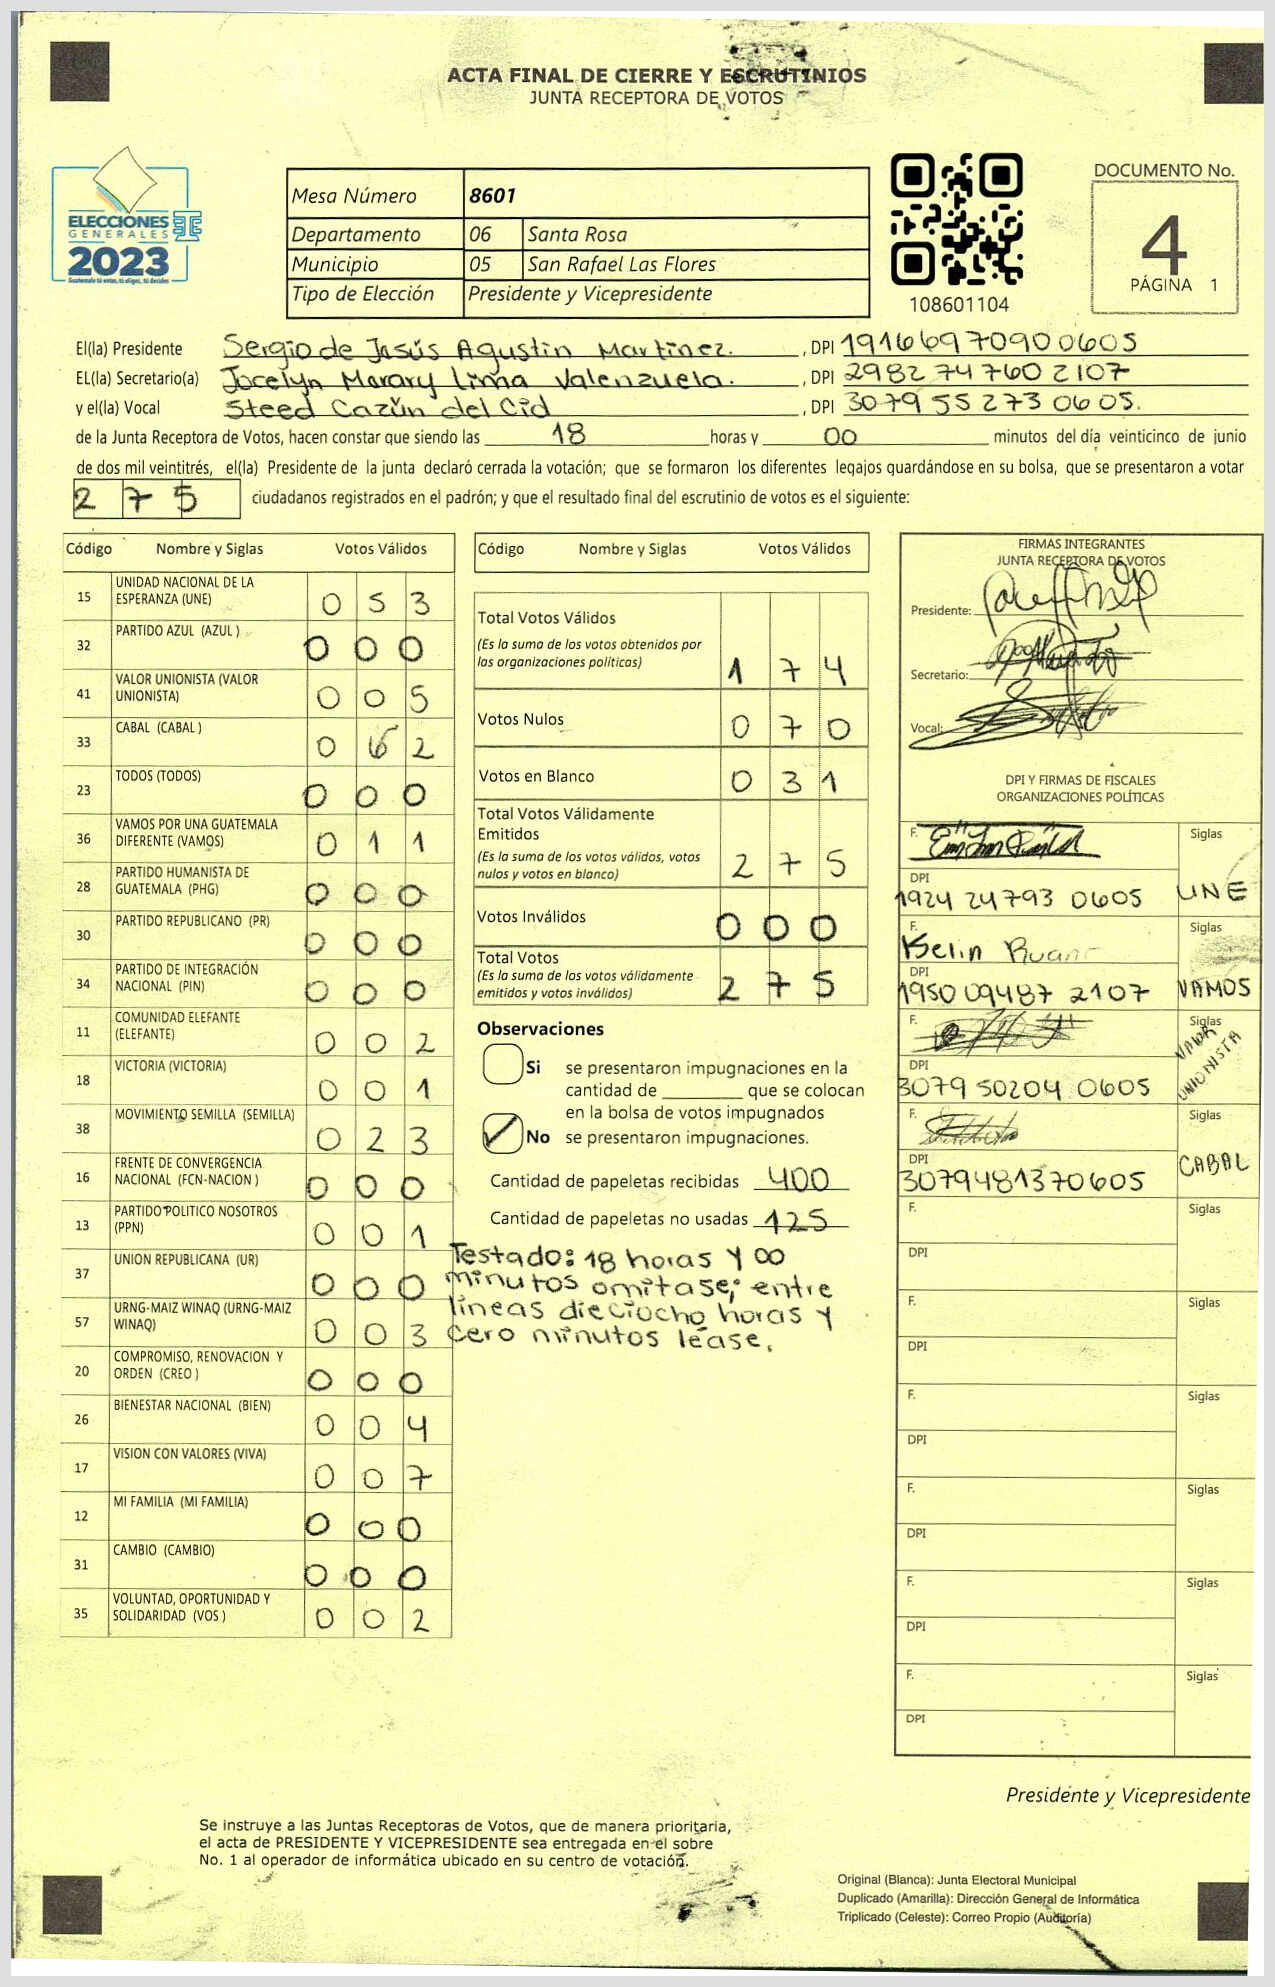 ACTA FINAL DE CIERRE Y ESCRUTINIOS
JUNTA RECEPTORA DE VOTOS
ELECCIONES
GENERALES
2023
Guatemala tú votas, tú eliges, tú decides
Mesa Número 8601
Departamento 06 Santa Rosa
Municipio 05 San Rafael Las Flores
Tipo de Elección Presidente y Vicepresidente
108601104
DOCUMENTO No.
4
PÁGINA 1
El(la) Presidente Sergio de Jesús Agustin Martinez. , DPI 1916697090 0605
EL(la) Secretario(a) Jocelyn Marary Lima Valenzuela. , DPI 2982747602107
y el(la) Vocal Steed Cazún del Cid , DPI 3079 55 273 0605.
de la Junta Receptora de Votos, hacen constar que siendo las 18 horas y 00 minutos del día veinticinco de junio
de dos mil veintitrés, el(la) Presidente de la junta declaró cerrada la votación; que se formaron los diferentes legajos guardándose en su bolsa, que se presentaron a votar
2 7 5 ciudadanos registrados en el padrón; y que el resultado final del escrutinio de votos es el siguiente:
Código Nombre y Siglas Votos Válidos
15 UNIDAD NACIONAL DE LA ESPERANZA (UNE) 0 5 3
32 PARTIDO AZUL (AZUL ) 0 0 0
41 VALOR UNIONISTA (VALOR UNIONISTA) 0 0 5
33 CABAL (CABAL ) 0 6 2
23 TODOS (TODOS) 0 0 0
36 VAMOS POR UNA GUATEMALA DIFERENTE (VAMOS) 0 1 1
28 PARTIDO HUMANISTA DE GUATEMALA (PHG) 0 0 0
30 PARTIDO REPUBLICANO (PR) 0 0 0
34 PARTIDO DE INTEGRACIÓN NACIONAL (PIN) 0 0 0
11 COMUNIDAD ELEFANTE (ELEFANTE) 0 0 2
18 VICTORIA (VICTORIA) 0 0 1
38 MOVIMIENTO SEMILLA (SEMILLA) 0 2 3
16 FRENTE DE CONVERGENCIA NACIONAL (FCN-NACION ) 0 0 0
13 PARTIDO POLITICO NOSOTROS (PPN) 0 0 1
37 UNION REPUBLICANA (UR) 0 0 0
57 URNG-MAIZ WINAQ (URNG-MAIZ WINAQ) 0 0 3
20 COMPROMISO, RENOVACION Y ORDEN (CREO ) 0 0 0
26 BIENESTAR NACIONAL (BIEN) 0 0 4
17 VISION CON VALORES (VIVA) 0 0 7
12 MI FAMILIA (MI FAMILIA) 0 0 0
31 CAMBIO (CAMBIO) 0 0 0
35 VOLUNTAD, OPORTUNIDAD Y SOLIDARIDAD (VOS ) 0 0 2
Código Nombre y Siglas Votos Válidos
Total Votos Válidos
(Es la suma de los votos obtenidos por
las organizaciones políticas) 1 7 4
Votos Nulos 0 7 0
Votos en Blanco 0 3 1
Total Votos Válidamente
Emitidos
(Es la suma de los votos válidos, votos
nulos y votos en blanco) 2 7 5
Votos Inválidos 0 0 0
Total Votos
(Es la suma de los votos válidamente
emitidos y votos inválidos) 2 7 5
Observaciones
Si se presentaron impugnaciones en la
cantidad de ________ que se colocan
en la bolsa de votos impugnados
No se presentaron impugnaciones.
Cantidad de papeletas recibidas 400
Cantidad de papeletas no usadas 125
Testado: 18 horas y 00
minutos omitase; entre
líneas dieciocho horas y
cero minutos léase.
FIRMAS INTEGRANTES
JUNTA RECEPTORA DE VOTOS
Presidente:
Secretario:
Vocal:
DPI Y FIRMAS DE FISCALES
ORGANIZACIONES POLÍTICAS
F. Siglas
DPI
1924 24793 0605 UNE
F. Kelin Ruano Siglas
DPI
1950 09487 2107 VAMOS
F. Siglas
VALOR
UNIONISTA
DPI
3079 50204 0605
F. Siglas
DPI CABAL
3079481370605
F. Siglas
DPI
F. Siglas
DPI
F. Siglas
DPI
F. Siglas
DPI
F. Siglas
DPI
F. Siglas
DPI
Presidente y Vicepresidente
Se instruye a las Juntas Receptoras de Votos, que de manera prioritaria,
el acta de PRESIDENTE Y VICEPRESIDENTE sea entregada en el sobre
No. 1 al operador de informática ubicado en su centro de votación.
Original (Blanca): Junta Electoral Municipal
Duplicado (Amarilla): Dirección General de Informática
Triplicado (Celeste): Correo Propio (Auditoría)